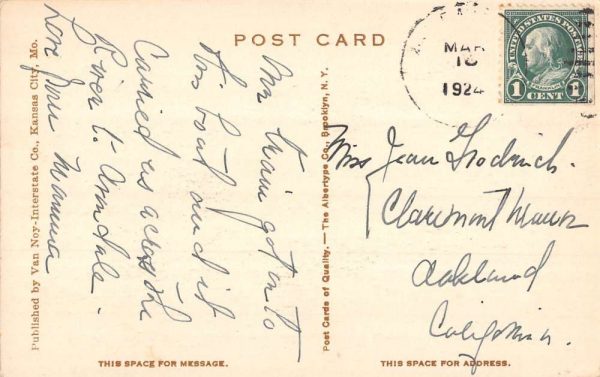 POST CARD
MAR
1924
UNITED STATES POSTAGE
FRANKLIN
1 CENT 1
Our train got on to
this boat and it
Carried us across the
River to
Love your Mamma
Miss Jean
Claremont Manor
Oakland
California.
Published by Van Noy-Interstate Co., Kansas City, Mo.
Post Cards of Quality. — The Albertype Co., Brooklyn, N. Y.
THIS SPACE FOR MESSAGE.
THIS SPACE FOR ADDRESS.